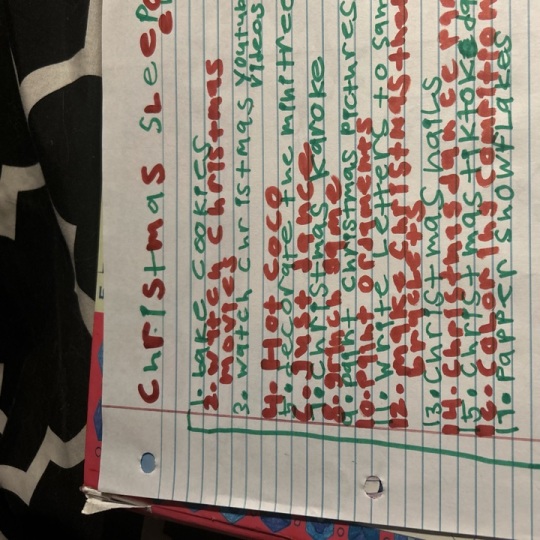 Christmas sleep
1. bake cookies
2. watch christmas
movies
3. watch christmas Youtube
videos
4. Hot coco
5. decorate the mini tree
6. Just Dance
7. Christmas karoke
9. paint christmas pictures
10. paint orniments
11. write letters to
12. make christmas
13. Christmas nails
14. christmas dance
15. Christmas tiktok
16. coloring
17. Papper snowflakes